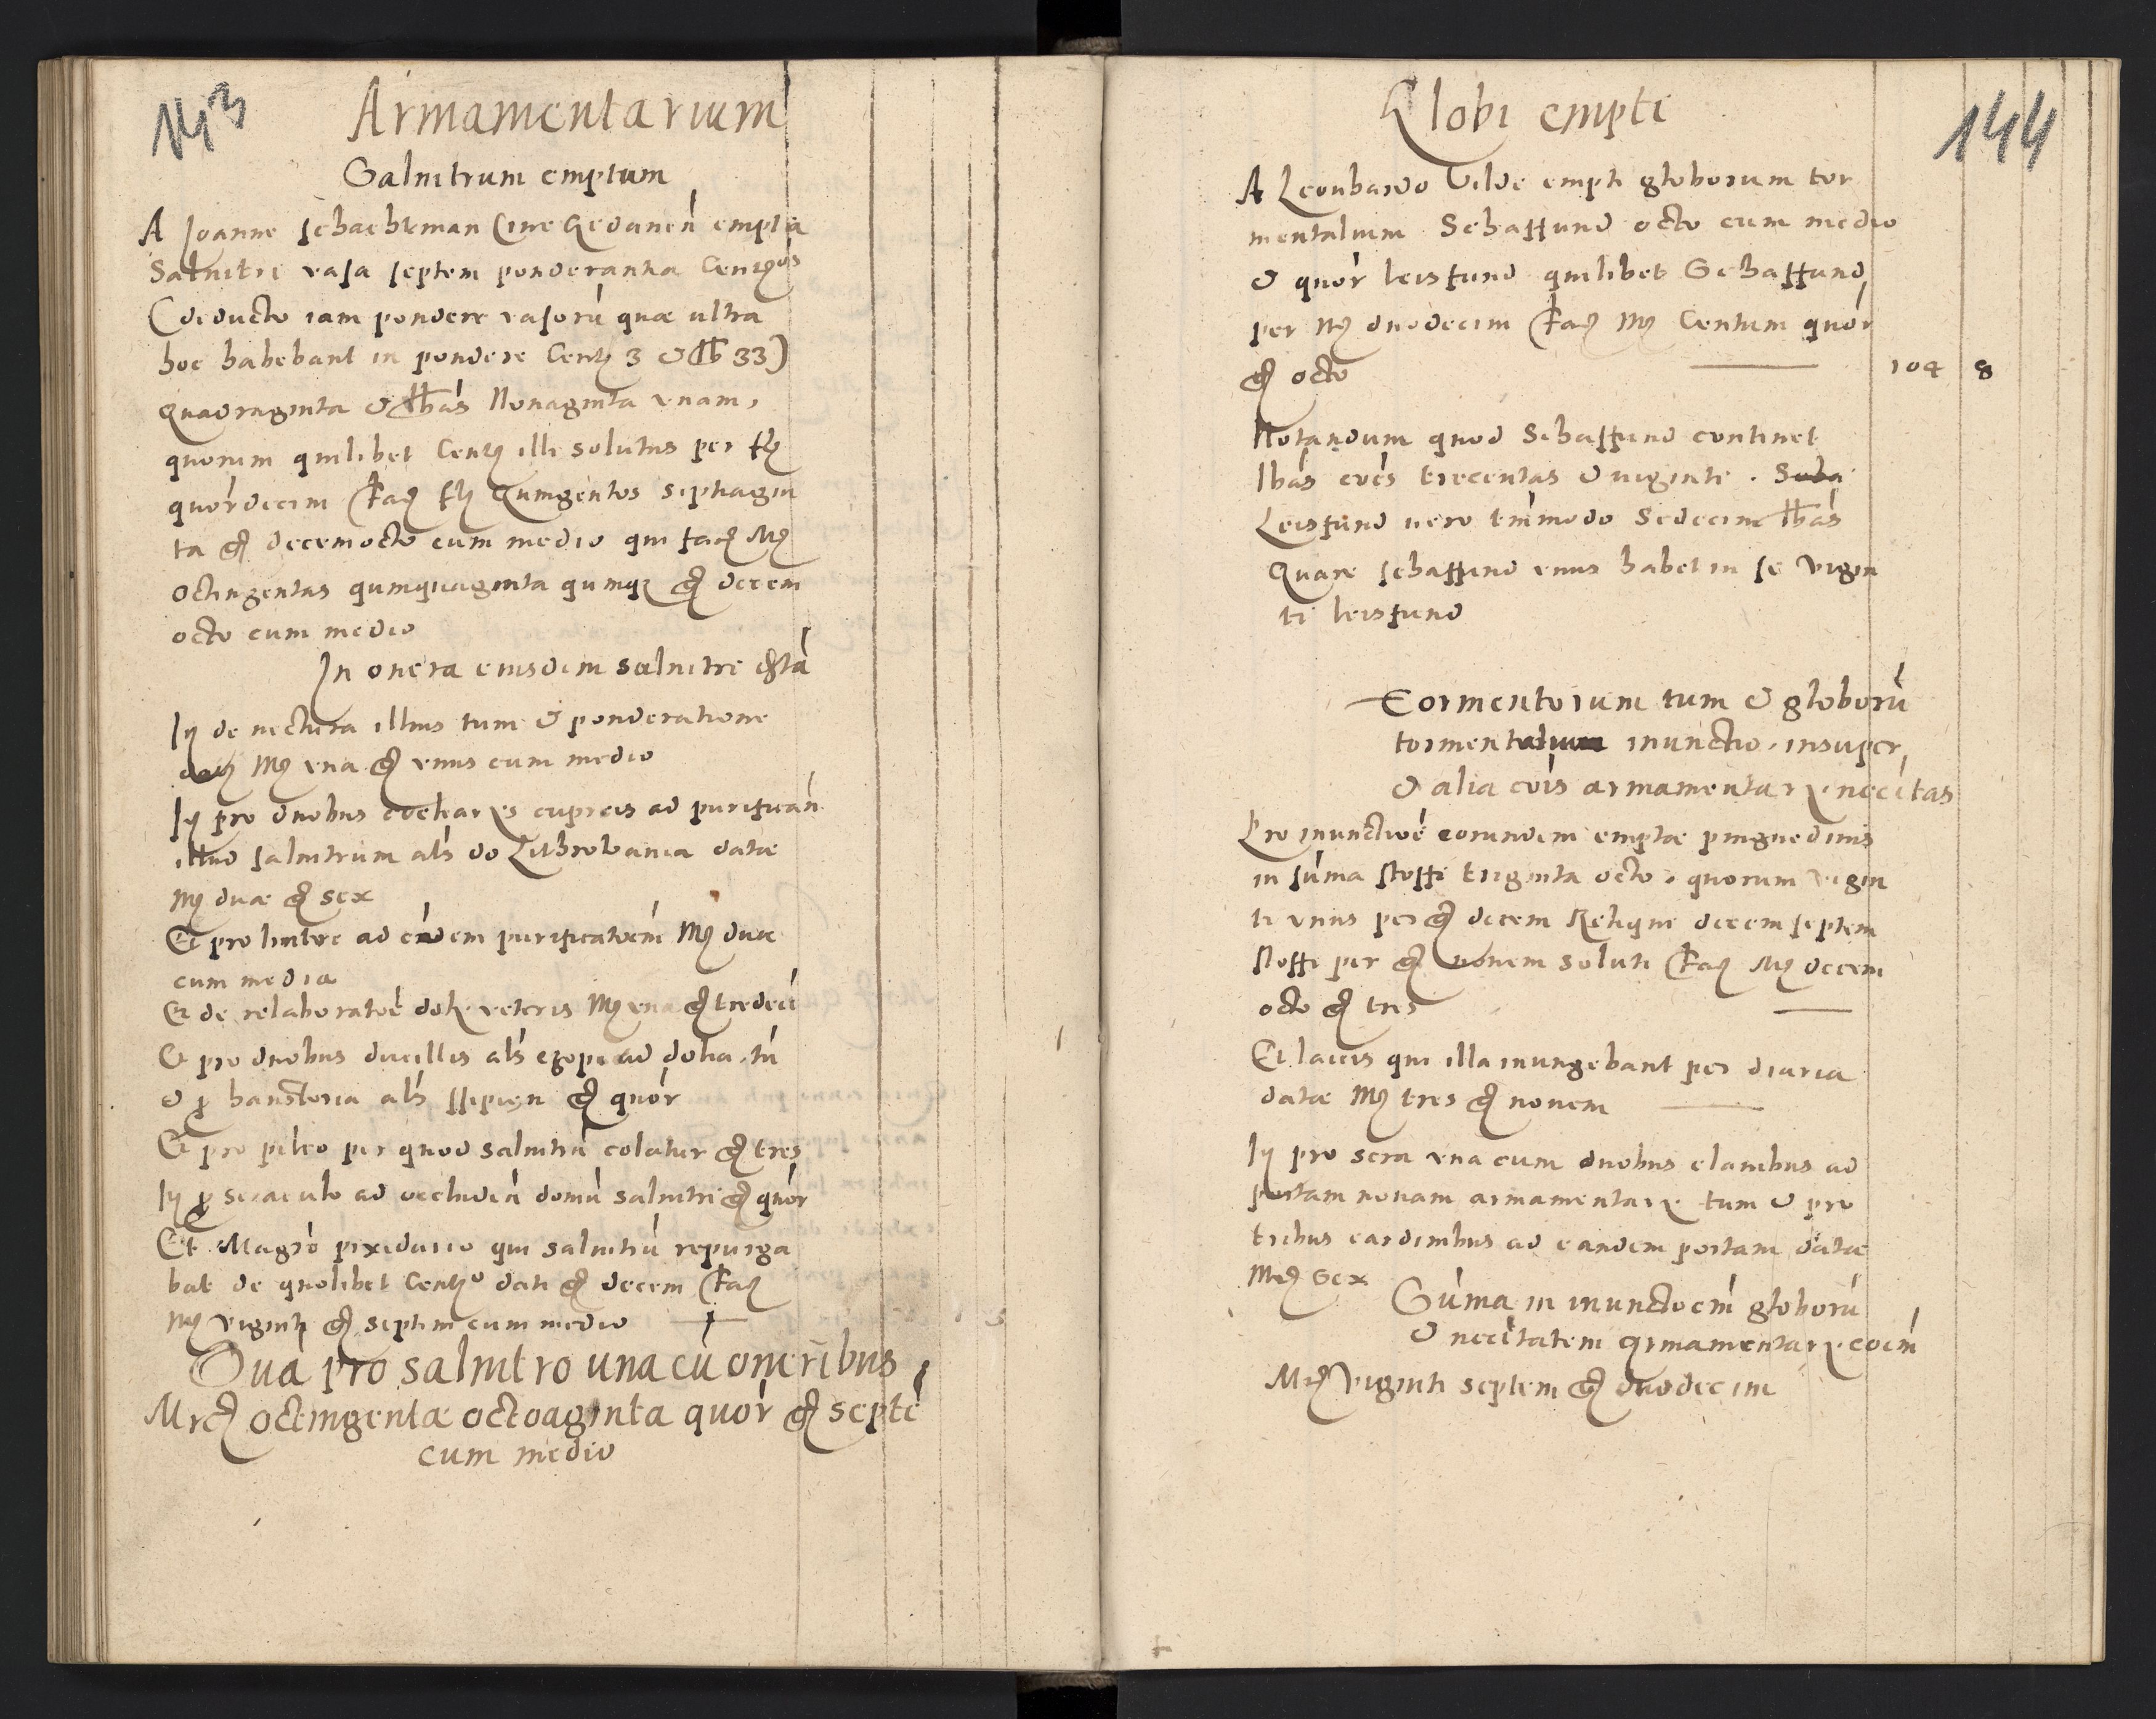 143
Armamentarium
Salnitrum emptum
A Joanne schachtman Cive Gedaneń empta
Salnitri vasa septem ponderantia Centos
(deducto iam pondere vasorú quæ ultra
hoc habebant in pondere Cent 3 & lb 33)
quadraginta & lbas Nonaginta vnam,
quorum quilibet Cent illi solutus per fl
quordecim faȼ fl Quingentos septuagin
ta gȼ decemocto cum medio qui faȼ Mȼ
octingentas quinquaginta quinqȝ gȼ decem
octo cum medio
In onera eiusdem salnitri
Itȝ de vectura illius tum & ponderatione
Mȼ vna gȼ vnus cum medio
Itȝ pro duobus cupreis ad purificań
illud salnitrum als do datæ
Mȼ duæ gȼ sex
Et pro lintre ad eńdem purificatoem Mȼ duæ
cum media
Et de relaboratoe veteris Mȼ vna gȼ tredeci
Et pro duobus ducillis als ad dolia, tú
& ꝓ haustoria als gȼ quór
Et pro pileo per quod salnitrú colatur gȼ tres
Itȝ ꝓ seraculo ad occludeń domú salnitri gȼ quór
Et Magrό pixidario qui salnitrú repurga
bat de quolibet Cento dati gȼ decem faȼ
Mȼ viginti gȼ septem cum medio
Súa pro salnitro una cú oneribus
Mrȼ octingentæ octoaginta quór gȼ septé
cum medio
144
Globi empti
A Leonhardo Vilde empti globorum tor
mentalium Schaffund octo cum medio
& quór leisfund quilibet Schaffund
per Mȼ duodecim faȼ Mȼ Centum quór
gȼ octo 104 8
Notandum quod Schaffund continet
lbás trecentas & viginti.
Leisfund vero tmmodo Sedecim lbás
Quare schaffund vnus habet in se vigin
ti leisfund
Tormentorum tum & gloború
tormentalium inunctio, insuper
& alia cois armamentarȝ necitas
Pro inunctioé eorundem emptæ pinguedinis
in súma stoffi triginta octo, quorum vigin
ti vnus per gȼ decem Relique decem septem
stoffi per gȼ novem soluti faȼ Mȼ decem
octo gȼ tres
Et laicis qui illa inungebant per diaria
datæ Mȼ tres gȼ novem
Itȝ pro sera vna cum duobus clavibus ad
portam novam armamentarȝ tum & pro
tribus cardinibus ad eandem portam datæ
Mrȼ sex
Súma in inunctoem gloború
& necitatem armamentarȝ coem
Mrȼ viginti septem gȼ duodecim